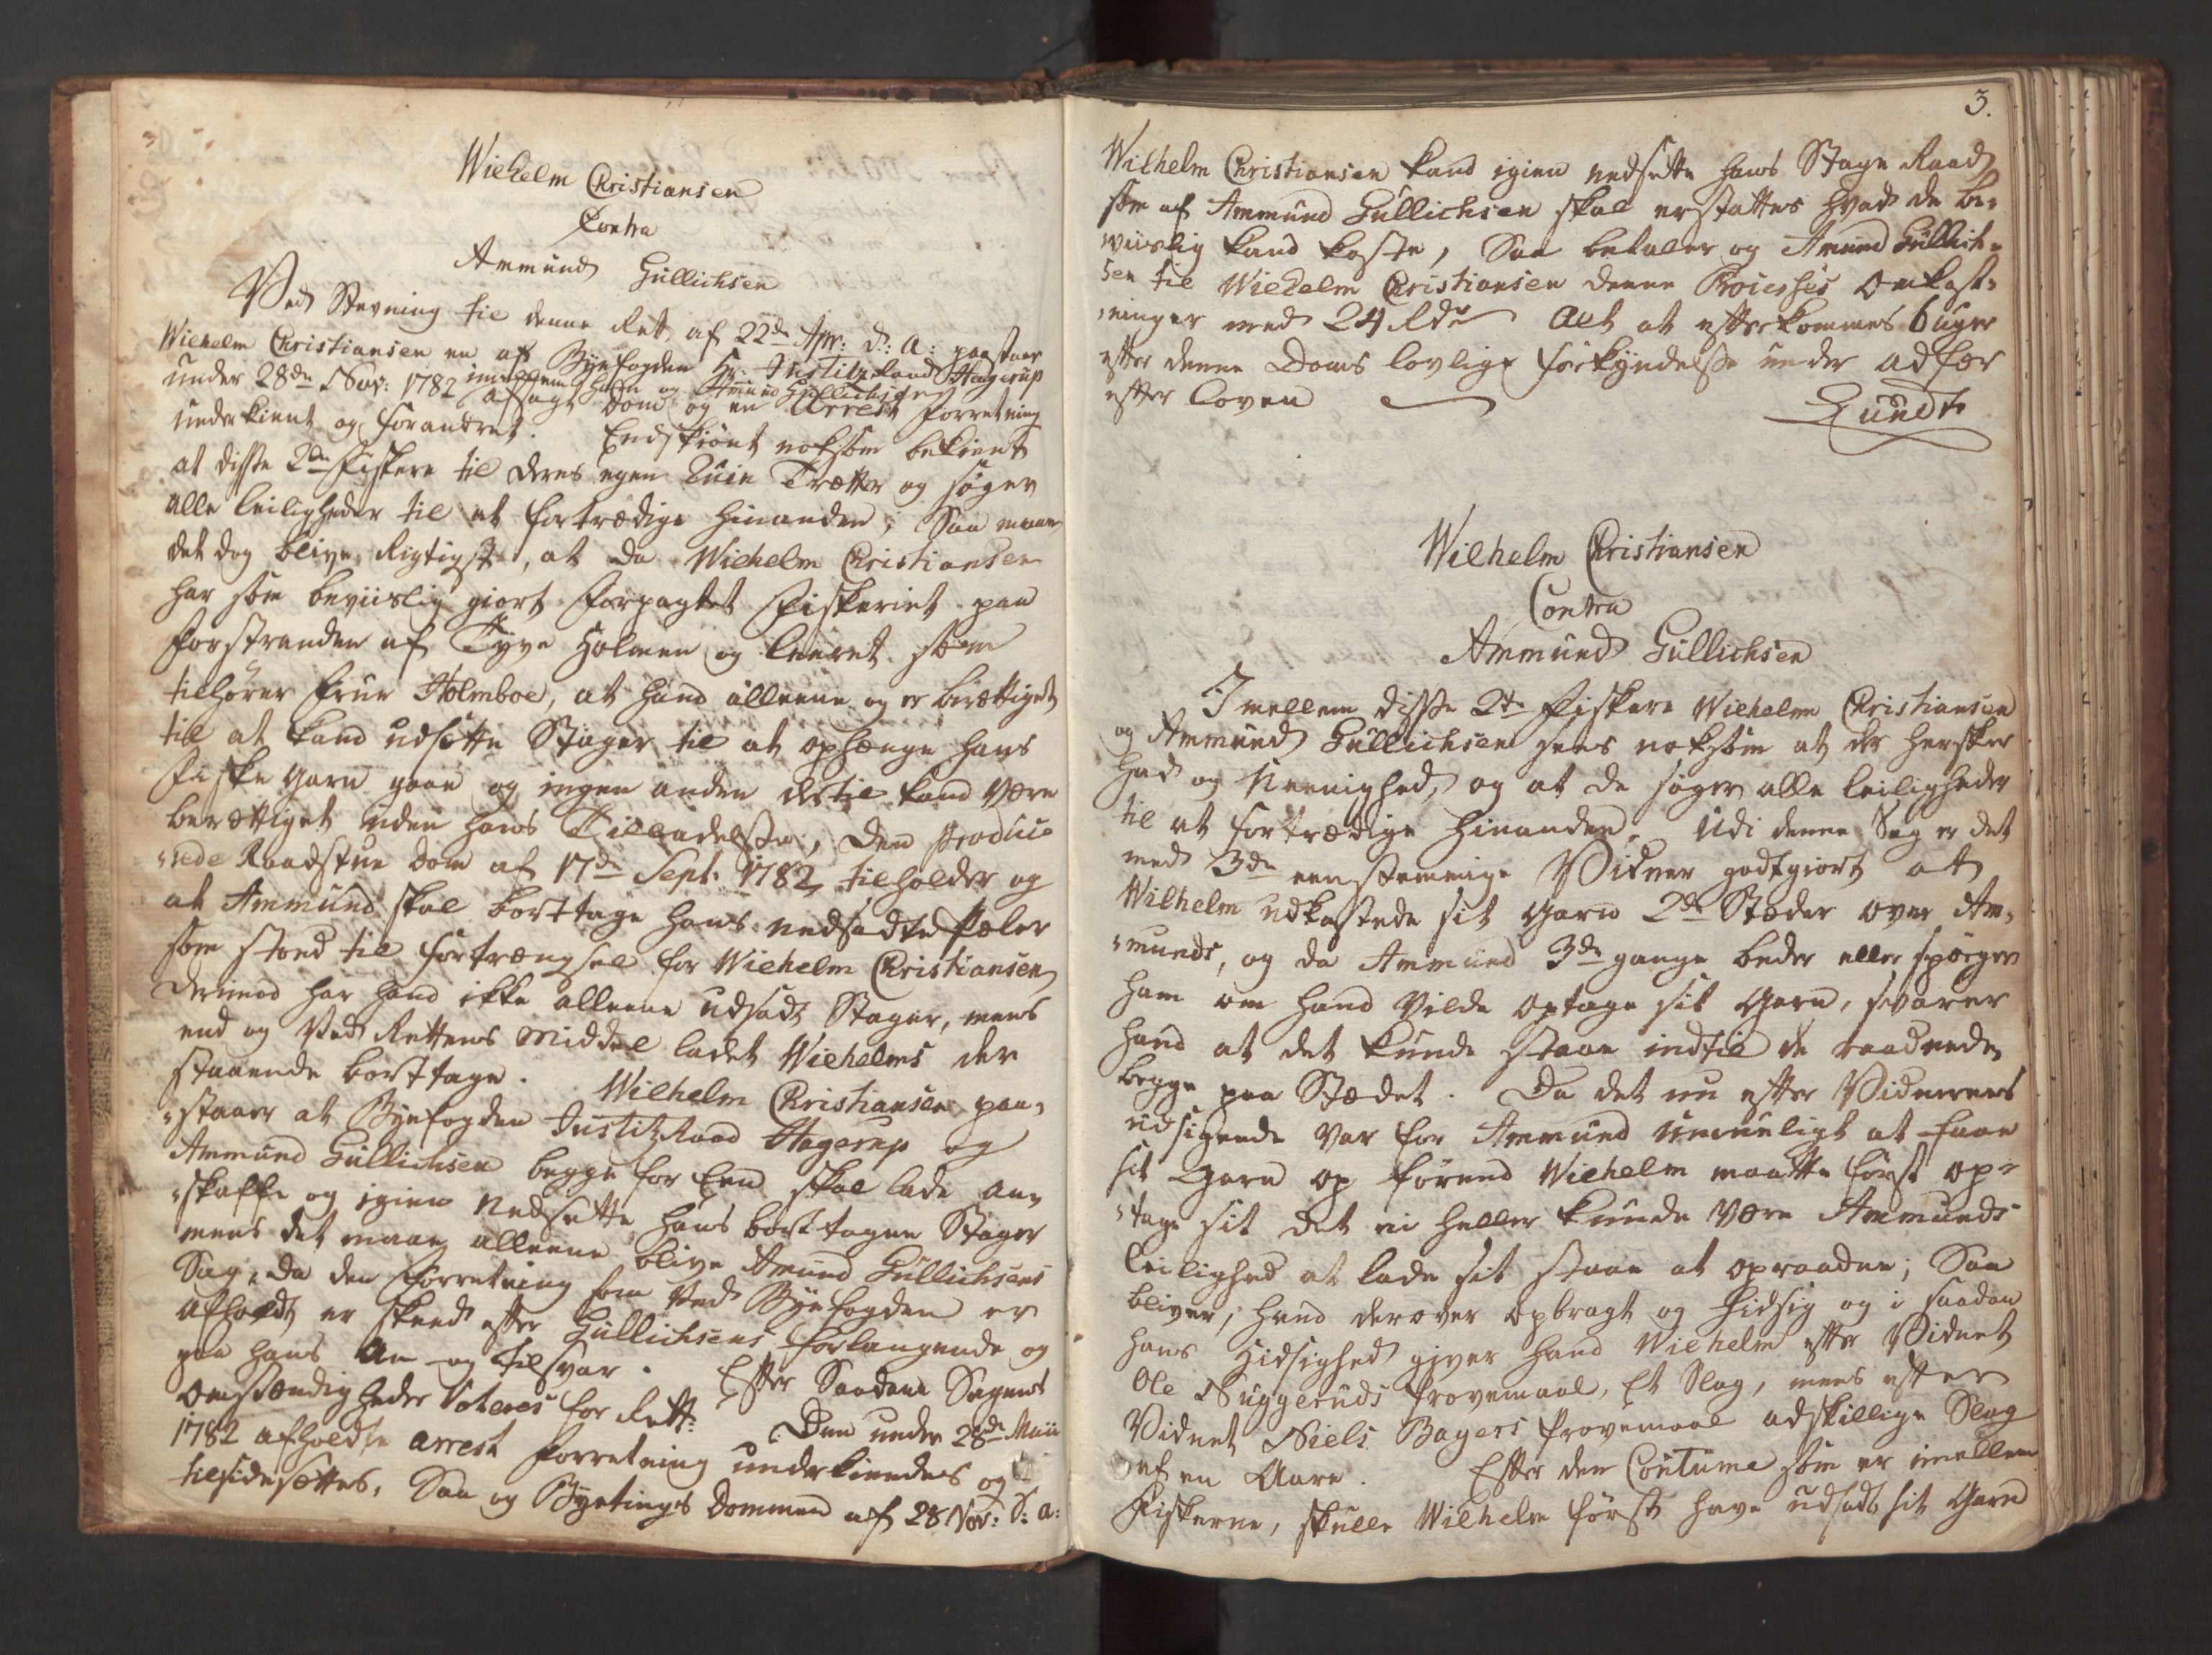 Wilhelm Christiansen
Contra
Ammund Gullichsen
Ved Stevning til denne Rett af 22de Apr: d: A: paastaar
Wilhelm Christiansen en af Byefogden Hr: Justitzraad Hagerup
under 28de Nov: 1782 imellem ham og Amund Gullichsen afsagt Dom og en Arrest Forretning
underkient og forandret. Endskiønt noksom bekient
at disse 2de Fiskere til deres egen Ruin Trætter og søger
alle leiligheder til at fortrædige hinanden; Saa maae
det dog blive Rigtigst, at da Wilhelm Christiansen
har som beviislig giort forpagtet Fiskeriet paa
forstranden af Tyve Holmen og Leeret som
tilhører Frue Holmboe, at hand alleene og er berættiget
til at kand udsætte Stager til at ophænge hans
Fiske Garn paa og ingen anden dertil kand være
berættiget uden hans Tilladelse; Den produce
rede Raadstue Dom af 17de Sept: 1782 tilholder og
at Ammund skal borttage hans nedsadte Pæler
som stoed til fortrængsel for Wilhelm Christiansen
Derimod har hand ikke alleene udsadt Stager, mens
end og Ved Rettens Middel ladet Wilhelms der
staaende borttage. Wilhelm Christiansen paa-
staaer at Byefogden Justitz Raad Hagerup og
Ammund Gullichsen begge for Een skal lade an-
skaffe og igien Nedsætte hans borttagne Stager
mens det maae alleene blive Amund Gullichsens
Sag, da den Forretning som Ved Byefogden er
afholdt er skeed efter Gullichsens forlangende og
paa hans An og Tilsvar. Efter Saadane Sagens
Omstændigheder Voteres for Rett: Den under 28de Maii
1782 afholdte Arrest Forretning underkiendes og
tilsidesættes, Saa og Byetings Dommen af 28 Nov: d: a:
3.
Wilhelm Christiansen kand igien nedsætte hans Stage Raad
som af Ammund Gullichsen skal erstattes hvad de be-
viislig kand koste, Saa betaler og Amund Gullich-
sen til Wilhelm Christiansen denne Processes Omkost-
ninger med 24 Rdr Alt at efterkommes 6 uger
efter denne Doms lovlige forkyndelse under adfær
efter Loven
Lundt
Wilhelm Christiansen
Contra
Ammund Gullichsen
Imellem disse 2de Fiskere Wilhelm Christiansen
og Ammund Gullichsen sees noksom at der hersker
had og Ueenighed, og at de søger alle leiligheder
til at fortrædige hinanden. Udi denne Sag er det
med 3de eenstemmige Vidner godtgiort at
Wilhelm udkastede sit Garn 2de Stæder over Am-
munds, og da Ammund 3de gange beder eller spørger
ham om hand Vilde optage sit Garn, svarer
hand at det kunde staae indtil de raadnede
begge paa Stædet. Da det nu efter Vidnernes
udsigende var for Ammund umueligt at faae
sit Garn op førend Wilhelm maatte først op-
tage sit det ei heller kunde være Ammunds
leilighed at lade sit staae at opraadne; Saa
bliver, hand derover opbragt og hidsig og i saadan
hans Hidsighed giver hand Wilhelm efter Vidnet
Ole Nuggeruds Provemaal, Et Slag, mens efter
Vidnet Niels Bagers Provemaal adskillige Slag
af en Aare. Efter den Coutume som er imellem
Fiskerne, skulle Wilhelm først have udsadt sit Garn